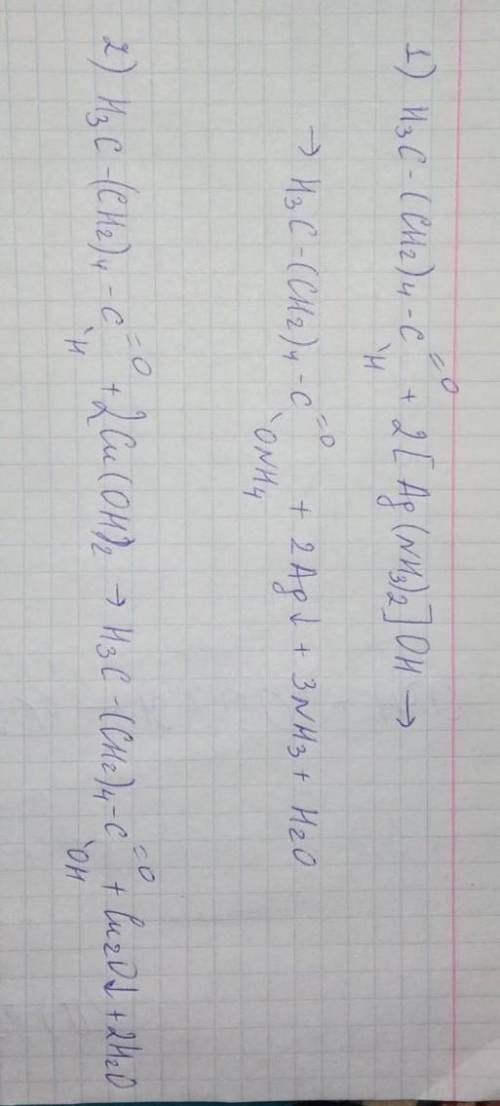 1) H₃C-(CH₂)₄-C=O-H + 2[Ag(NH₃)₂]OH →
→ H₃C-(CH₂)₄-C=O-ONH₄ + 2Ag↓ + 3NH₃ + H₂O
2) H₃C-(CH₂)₄-C=O-H + 2Cu(OH)₂ → H₃C-(CH₂)₄-C=O-OH + Cu₂O↓ + 2H₂O